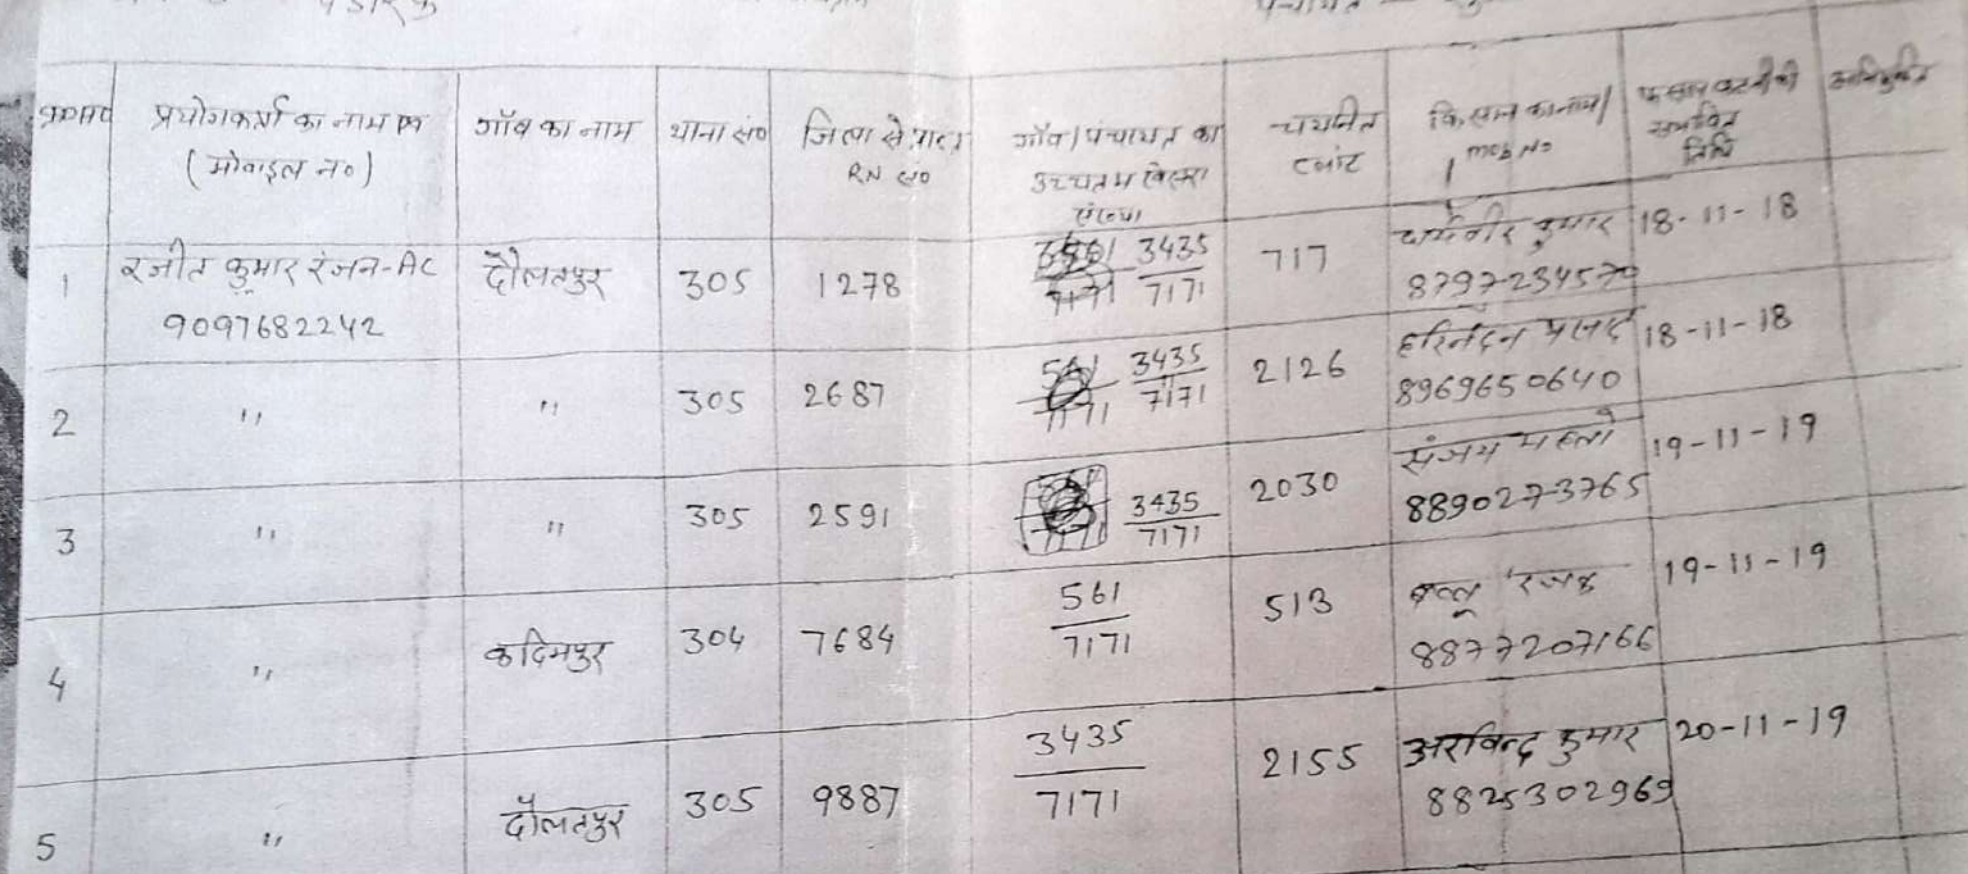 प्रयोगकर्ता का नाम एवं
(मोबाइल न०)
गाँव का नाम
थाना सं०
जिला से प्राप्त
RN सं०
गाँव/पंचायत का
उच्चतम खेसरा
संख्या
चयनित
प्लॉट
किसान का नाम/
mob No
फसल कटनी की
सम्भावित
तिथि
1
रंजीत कुमार रंजन-AC
9097682242
दौलतपुर
305
1278
3435
7171
717
धर्मवीर कुमार
8797234570
18-11-18
2
"
"
305
2687
3435
7171
2126
हरिनंदन प्रसाद
8969650640
18-11-18
3
"
"
305
2591
3435
7171
2030
संजय महतो
8890273765
19-11-19
4
"
कदिमपुर
304
7684
561
7171
513
रजक
8877207166
19-11-19
5
"
दौलतपुर
305
9887
3435
7171
2155
अरविन्द कुमार
8825302969
20-11-19